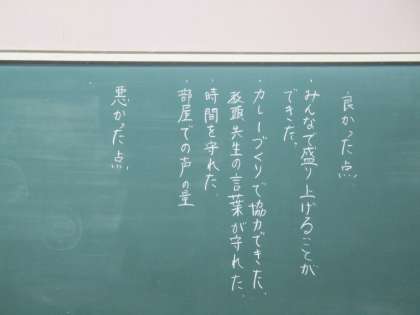 良かった点
・みんなで盛り上げることが
できた。
・カレーづくりで協力できた。
教頭先生の言葉が守れた。
・時間を守れた。
・部屋での声の量
悪かった点